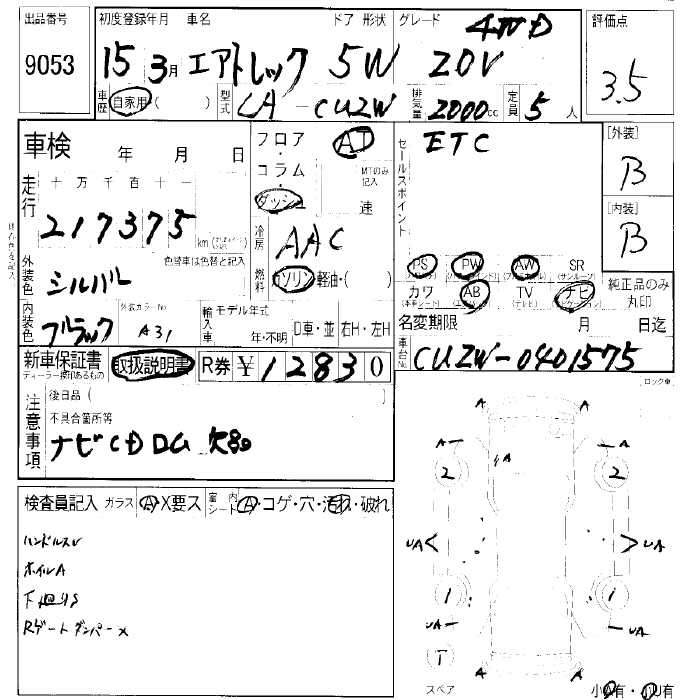 出品番号 初度登録年月 車名 ドア 形状 グレード 評価点
9053 15 3月 エアトレック 5W 4WD 20V 3.5
車歴 自家用・( ) 型式 LA - CU2W 排気量 2000cc 定員 5人
車検 年 月 日 フロア・コラム・ダッシュ AT MTのみ記入 速
セールスポイント ETC
[外装] B
[内装] B
走行 十万千百十一
217375 km
冷房 AAC
外装色 シルバー 色替車は色替と記入
燃料 ガソリン・軽油・( )
PS PW AW SR (サンルーフ)
カワ AB TV ナビ
純正品のみ丸印
内装色 ブラック 外装カラーNo A31
輸入車 モデル年式 年・不明 D車・並 右H・左H
名変期限 月 日迄
新車保証書 取扱説明書 R券 ¥12830
車台No. CU2W-0401575
注意事項 後日品( )
不具合箇所等
ナビCD DG 欠品
ロック車
検査員記入 ガラス A・X要ス 室内シート A・コゲ・穴・汚れ・破れ
ハンドルスレ
ホイルA
下廻りS
Rゲートダンパーx
A A
A A
2 2
A
UA UA
1 1
UA UA
T
A A
スペア